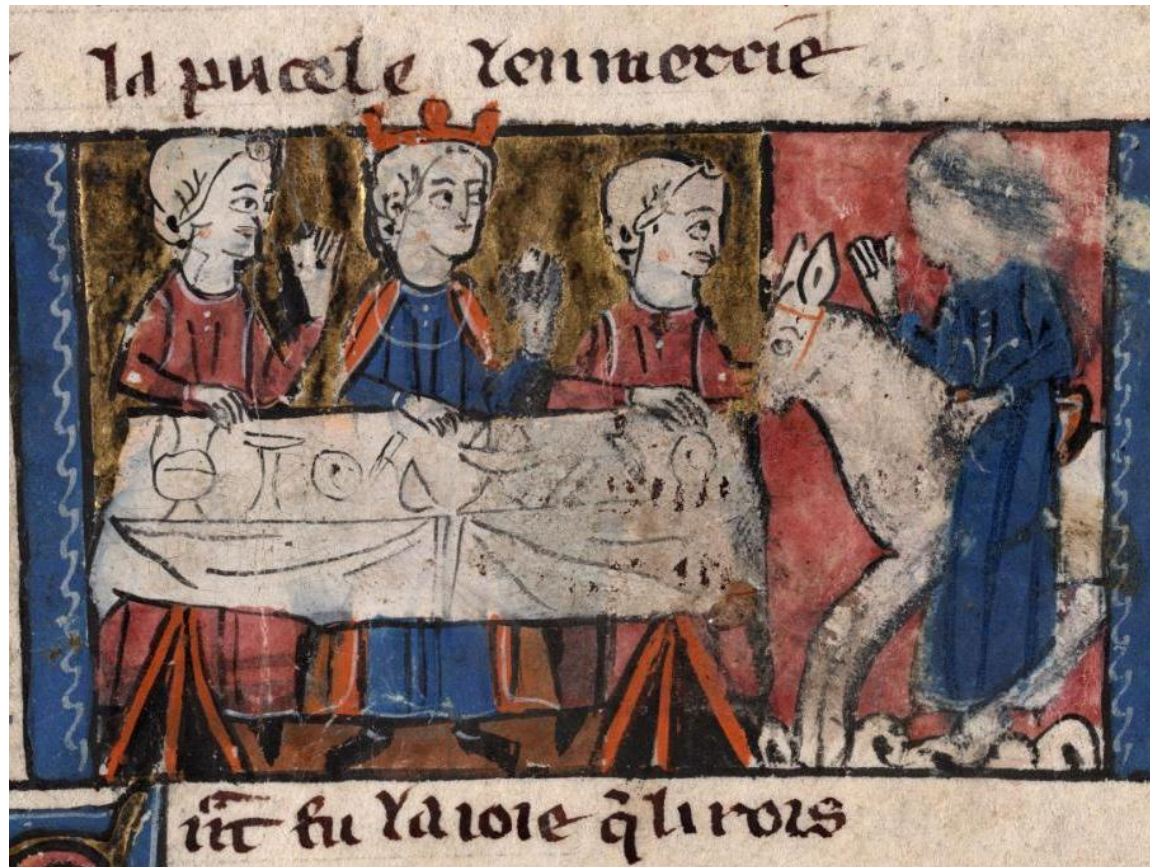 la pucele lenmercie
fu la ioie q̃ li rois